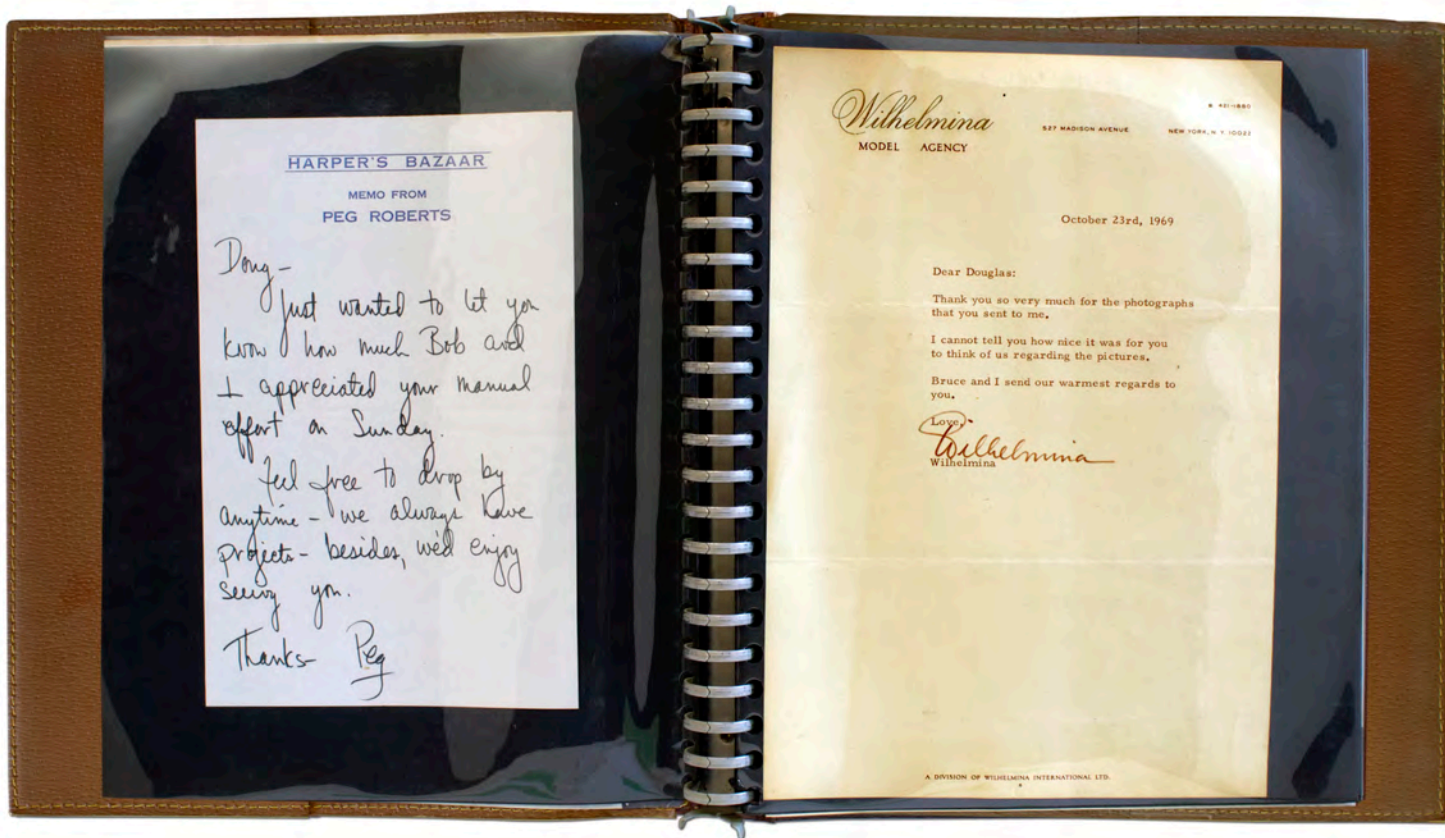 HARPER'S BAZAAR
MEMO FROM
PEG ROBERTS
Doug-
Just wanted to let you
know how much Bob and
I appreciated your manual
effort on Sunday.
Feel free to drop by
anytime - we always have
projects - besides, we'd enjoy
seeing you.
Thanks- Peg
Wilhelmina
MODEL AGENCY
527 MADISON AVENUE
NEW YORK, N. Y. 10022
October 23rd, 1969
Dear Douglas:
Thank you so very much for the photographs
that you sent to me.
I cannot tell you how nice it was for you
to think of us regarding the pictures.
Bruce and I send our warmest regards to
you.
Love,
Wilhelmina
Wilhelmina
A DIVISION OF WILHELMINA INTERNATIONAL LTD.